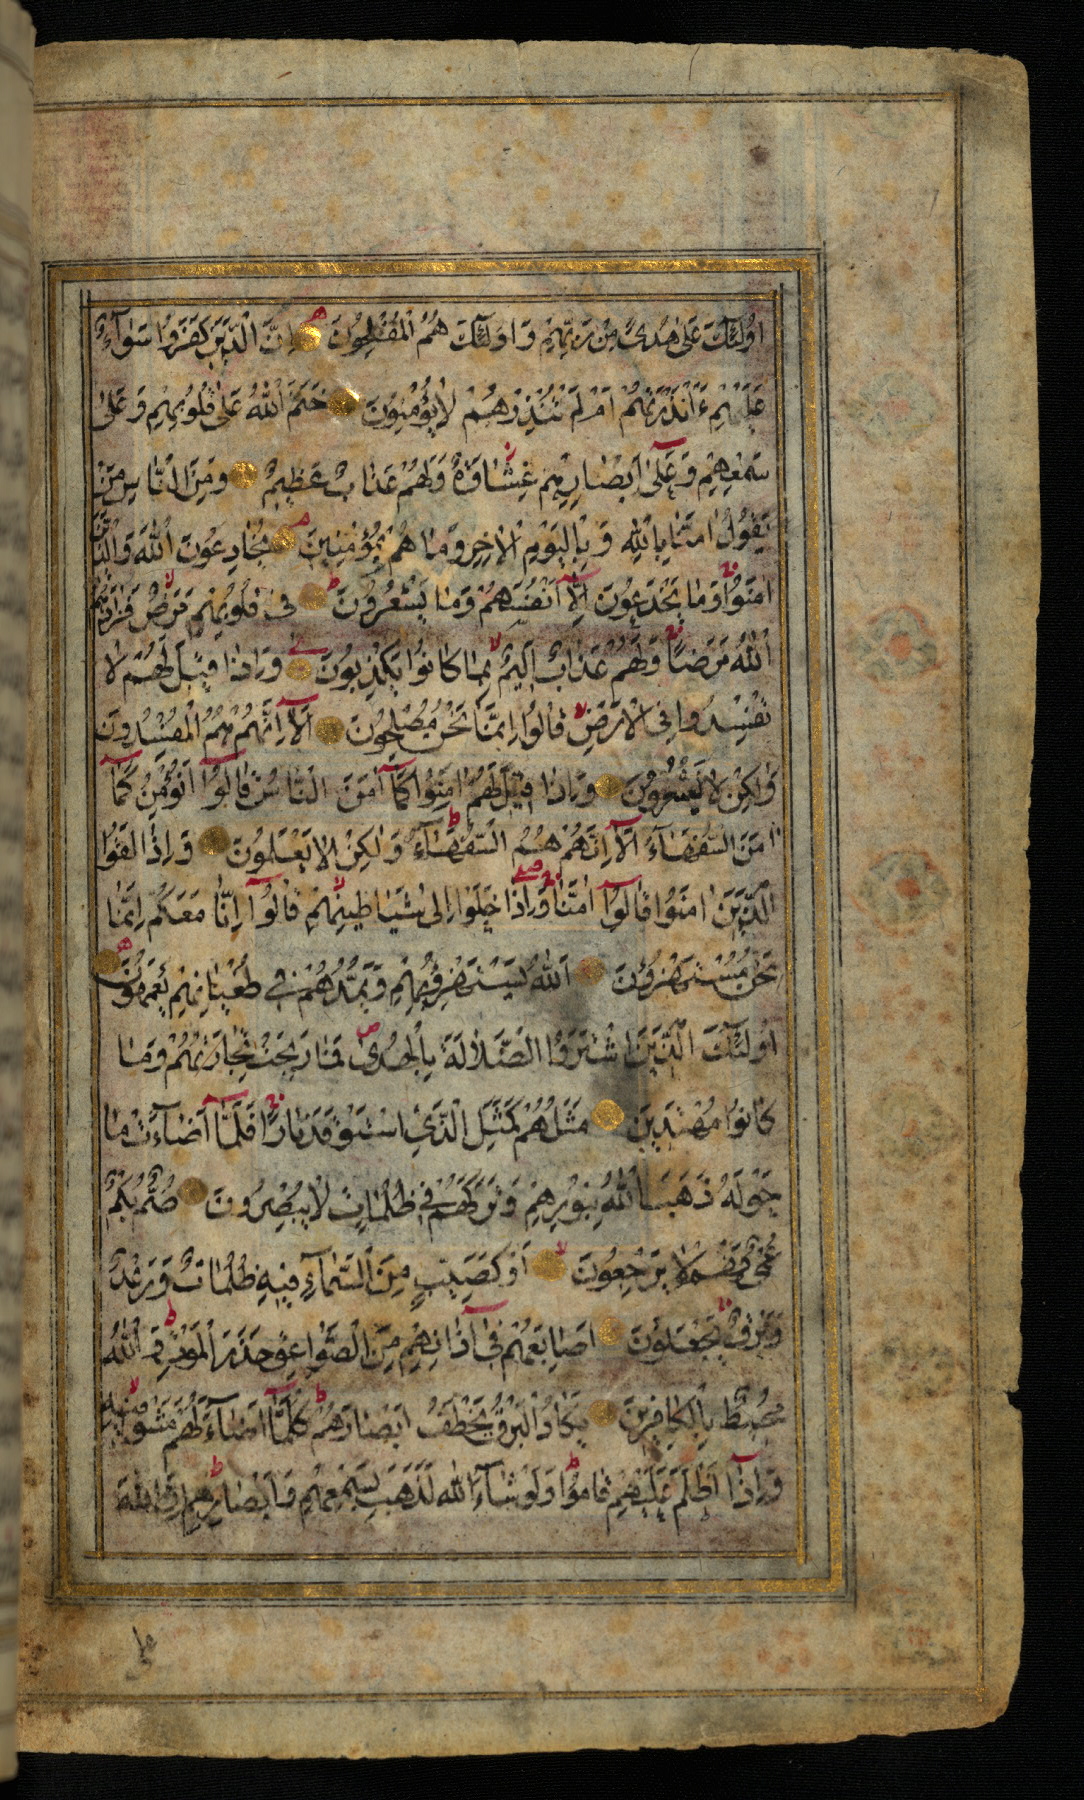 اُولٰئِكَ عَلٰى هُدًى مِنْ رَبِّهِمْ وَاُولٰئِكَ هُمُ الْمُفْلِحُونَ اِنَّ الَّذِينَ كَفَرُوا سَوَآءٌ
عَلَيْهِمْ ءَاَنْذَرْتَهُمْ اَمْ لَمْ تُنْذِرْهُمْ لَا يُؤْمِنُونَ خَتَمَ اللّٰهُ عَلٰى قُلُوبِهِمْ وَعَلٰى
سَمْعِهِمْ وَعَلٰٓى اَبْصَارِهِمْ غِشَاوَةٌ وَلَهُمْ عَذَابٌ عَظِيمٌ وَمِنَ النَّاسِ مَنْ
يَقُولُ اٰمَنَّا بِاللّٰهِ وَبِالْيَوْمِ الْاٰخِرِ وَمَا هُمْ بِمُؤْمِنِينَ يُخَادِعُونَ اللّٰهَ وَالَّذِينَ
اٰمَنُوا وَمَا يَخْدَعُونَ اِلَّٓا اَنْفُسَهُمْ وَمَا يَشْعُرُونَ فِى قُلُوبِهِمْ مَرَضٌ فَزَادَهُمُ
اللّٰهُ مَرَضًا وَلَهُمْ عَذَابٌ اَلِيمٌ بِمَا كَانُوا يَكْذِبُونَ وَاِذَا قِيلَ لَهُمْ لَا
تُفْسِدُوا فِى الْاَرْضِ قَالُوا اِنَّمَا نَحْنُ مُصْلِحُونَ اَلَٓا اِنَّهُمْ هُمُ الْمُفْسِدُونَ
وَلٰكِنْ لَا يَشْعُرُونَ وَاِذَا قِيلَ لَهُمْ اٰمِنُوا كَمَٓا اٰمَنَ النَّاسُ قَالُوٓا اَنُؤْمِنُ كَمَٓا
اٰمَنَ السُّفَهَآءُ اَلَٓا اِنَّهُمْ هُمُ السُّفَهَآءُ وَلٰكِنْ لَا يَعْلَمُونَ وَاِذَا لَقُوا
الَّذِينَ اٰمَنُوا قَالُوٓا اٰمَنَّا وَاِذَا خَلَوْا اِلٰى شَيَاطِينِهِمْ قَالُوٓا اِنَّا مَعَكُمْ اِنَّمَا
نَحْنُ مُسْتَهْزِؤُنَ اَللّٰهُ يَسْتَهْزِئُ بِهِمْ وَيَمُدُّهُمْ فِى طُغْيَانِهِمْ يَعْمَهُونَ
اُولٰئِكَ الَّذِينَ اشْتَرَوُا الضَّلَالَةَ بِالْهُدٰى فَمَا رَبِحَتْ تِجَارَتُهُمْ وَمَا
كَانُوا مُهْتَدِينَ مَثَلُهُمْ كَمَثَلِ الَّذِى اسْتَوْقَدَ نَارًا فَلَمَّٓا اَضَآءَتْ مَا
حَوْلَهُ ذَهَبَ اللّٰهُ بِنُورِهِمْ وَتَرَكَهُمْ فِى ظُلُمَاتٍ لَا يُبْصِرُونَ صُمٌّ بُكْمٌ
عُمْىٌ فَهُمْ لَا يَرْجِعُونَ اَوْ كَصَيِّبٍ مِنَ السَّمَآءِ فِيهِ ظُلُمَاتٌ وَرَعْدٌ
وَبَرْقٌ يَجْعَلُونَ اَصَابِعَهُمْ فِىٓ اٰذَانِهِمْ مِنَ الصَّوَاعِقِ حَذَرَ الْمَوْتِ وَاللّٰهُ
مُحِيطٌ بِالْكَافِرِينَ يَكَادُ الْبَرْقُ يَخْطَفُ اَبْصَارَهُمْ كُلَّمَٓا اَضَآءَ لَهُمْ مَشَوْا فِيهِ
وَاِذَٓا اَظْلَمَ عَلَيْهِمْ قَامُوا وَلَوْ شَآءَ اللّٰهُ لَذَهَبَ بِسَمْعِهِمْ وَاَبْصَارِهِمْ اِنَّ اللّٰهَ
على